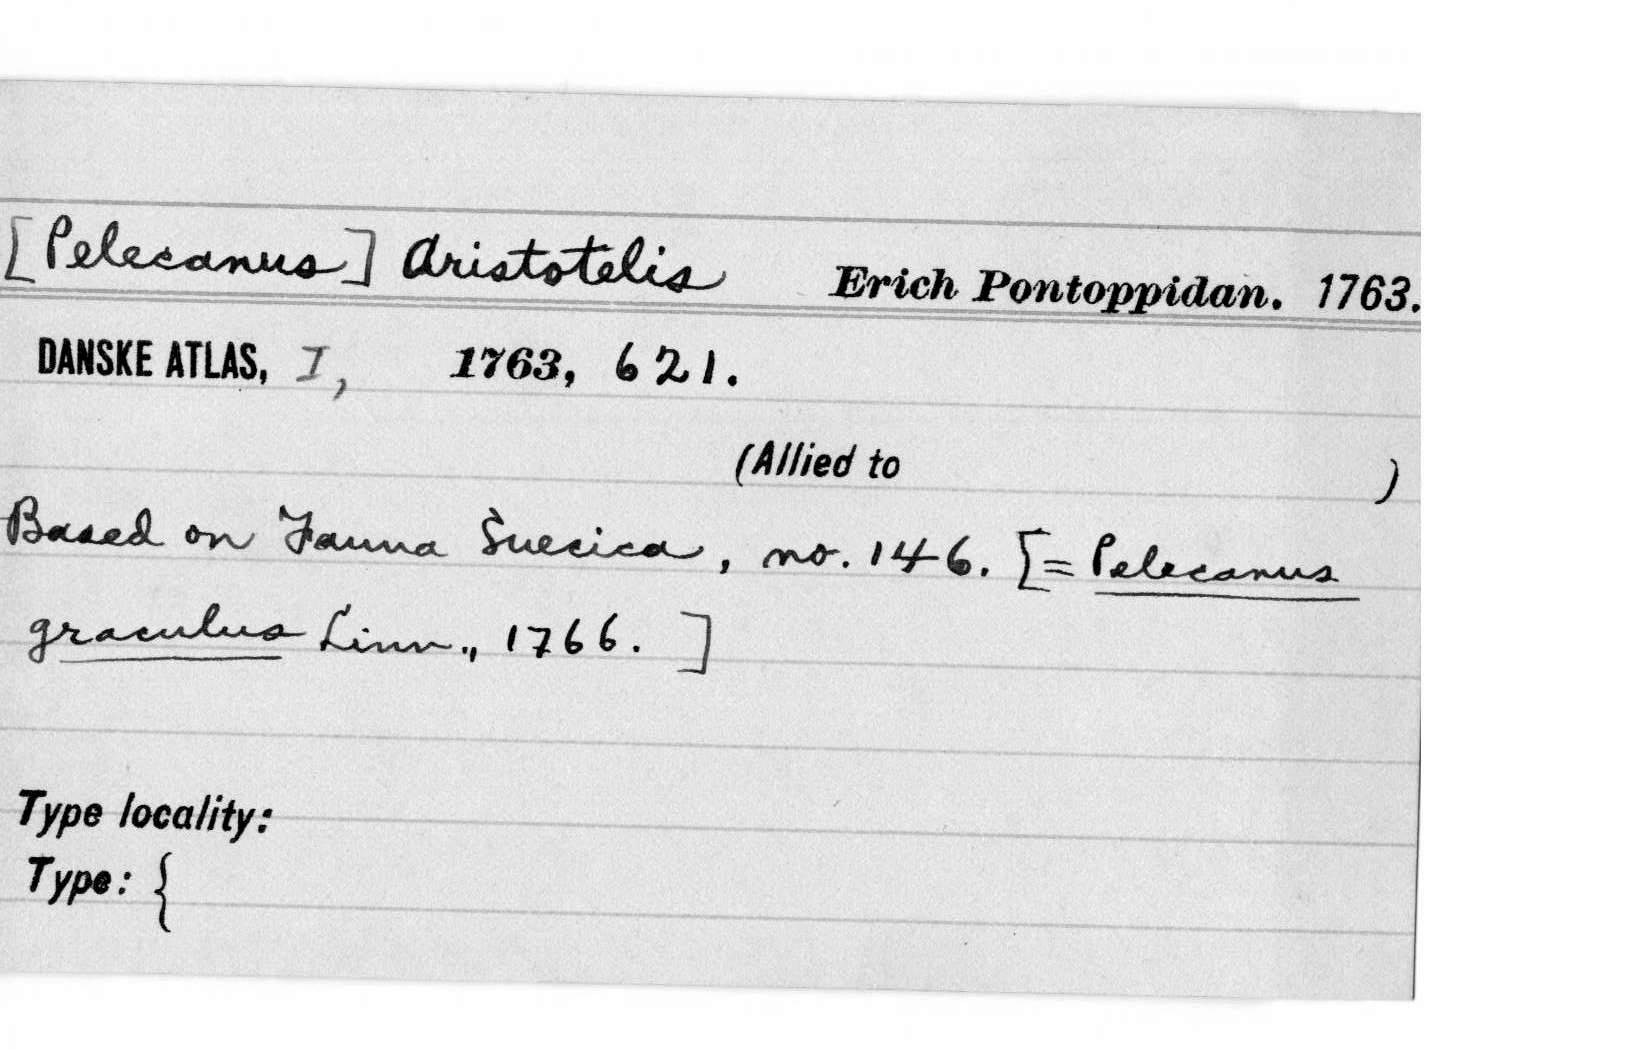 [Pelecanus] Aristotelis Erich Pontoppidan. 1763.
DANSKE ATLAS, I, 1763, 621.
(Allied to )
Based on Fauna Suecica, no. 146. [= Pelecanus
graculus Linn., 1766. ]
Type locality:
Type: {